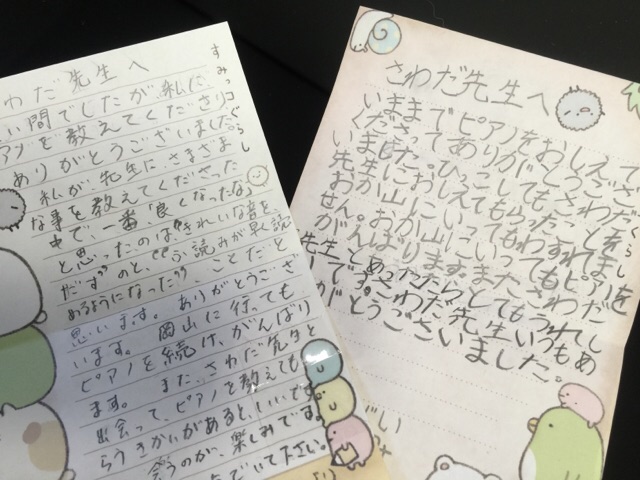 すみっコぐらし
わだ先生へ
い間でしたが、私に
アノを教えてくださり
ありがとうございました。
私が、先生にさまざま
な事を教えてくださった
中で一番良くなったな
と思ったのは"きれいな音を
だす"のと、"ふ読みが早く読
めるようになった"ことだと
思います。ありがとうござ
います。岡山に行っても
ピアノを続け、がんばり
ます。また、さわだ先生と
出会って、ピアノを教えても
らうきかいがあると、いいです。
会うのが、楽しみです。
でいて下さい。
さわだ先生へ
いままでピアノをおしえて
くださってありがとうござ
いました。ひっこしてもさわだ
先生におしえてもらったことを
おか山にいってもわすれま
せん。おか山にいってもピアノを
がんばります。またさわだ
先生とあったらとてもうれし
いです。さわだ先生いつもあ
りがとうございました。